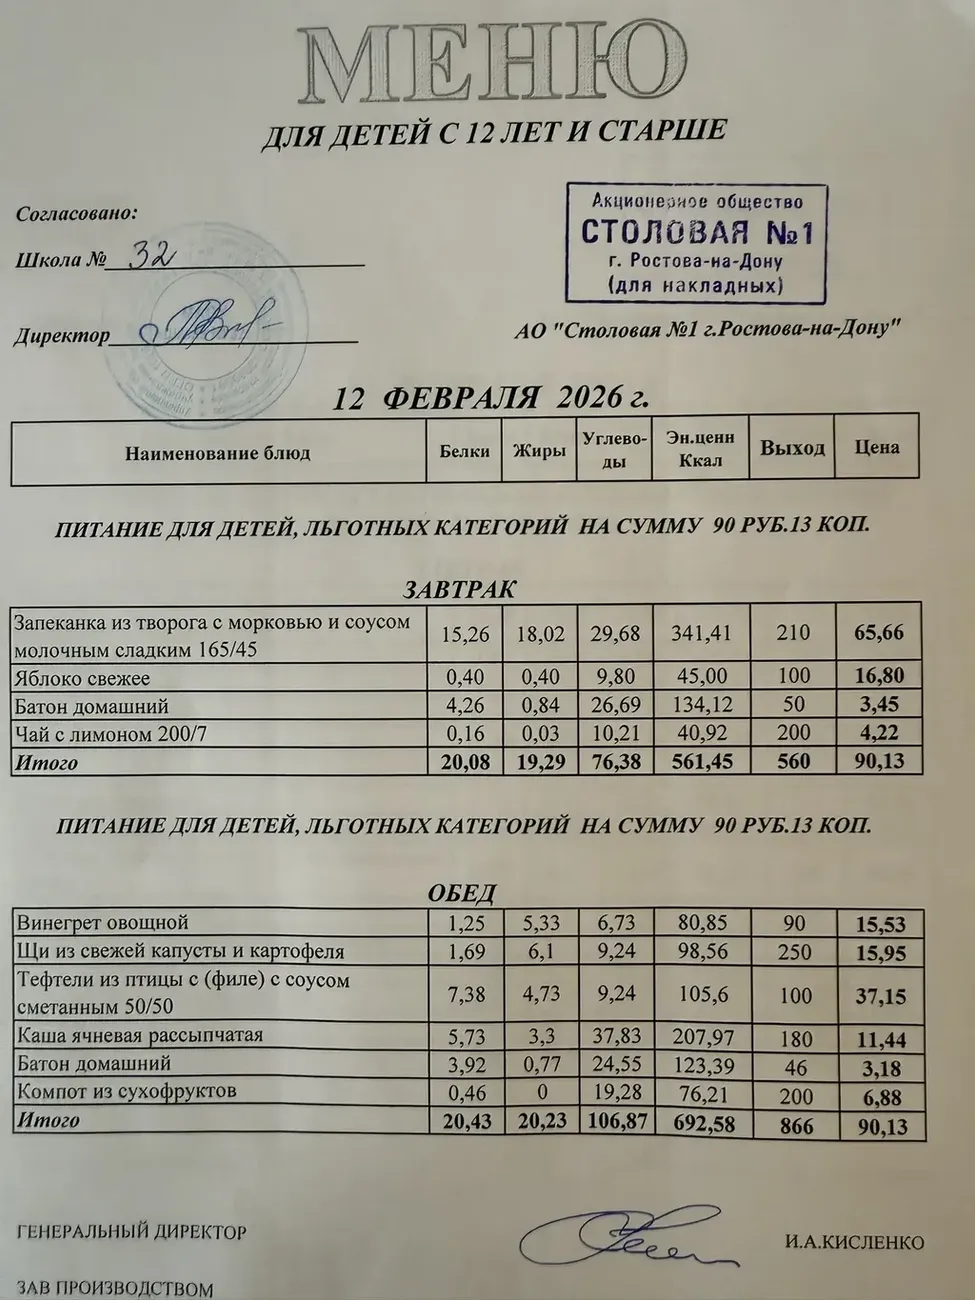 МЕНЮ
ДЛЯ ДЕТЕЙ С 12 ЛЕТ И СТАРШЕ
Согласовано:
Школа № 32
Директор
Акционерное общество
СТОЛОВАЯ №1
г. Ростова-на-Дону
(для накладных)
АО "Столовая №1 г.Ростова-на-Дону"
12 ФЕВРАЛЯ 2026 г.
Наименование блюд Белки Жиры Углево- Эн.ценн Выход Цена
ды Ккал
ПИТАНИЕ ДЛЯ ДЕТЕЙ, ЛЬГОТНЫХ КАТЕГОРИЙ НА СУММУ 90 РУБ.13 КОП.
ЗАВТРАК
Запеканка из творога с морковью и соусом
молочным сладким 165/45 15,26 18,02 29,68 341,41 210 65,66
Яблоко свежее 0,40 0,40 9,80 45,00 100 16,80
Батон домашний 4,26 0,84 26,69 134,12 50 3,45
Чай с лимоном 200/7 0,16 0,03 10,21 40,92 200 4,22
Итого 20,08 19,29 76,38 561,45 560 90,13
ПИТАНИЕ ДЛЯ ДЕТЕЙ, ЛЬГОТНЫХ КАТЕГОРИЙ НА СУММУ 90 РУБ.13 КОП.
ОБЕД
Винегрет овощной 1,25 5,33 6,73 80,85 90 15,53
Щи из свежей капусты и картофеля 1,69 6,1 9,24 98,56 250 15,95
Тефтели из птицы с (филе) с соусом
сметанным 50/50 7,38 4,73 9,24 105,6 100 37,15
Каша ячневая рассыпчатая 5,73 3,3 37,83 207,97 180 11,44
Батон домашний 3,92 0,77 24,55 123,39 46 3,18
Компот из сухофруктов 0,46 0 19,28 76,21 200 6,88
Итого 20,43 20,23 106,87 692,58 866 90,13
ГЕНЕРАЛЬНЫЙ ДИРЕКТОР И.А.КИСЛЕНКО
ЗАВ ПРОИЗВОДСТВОМ